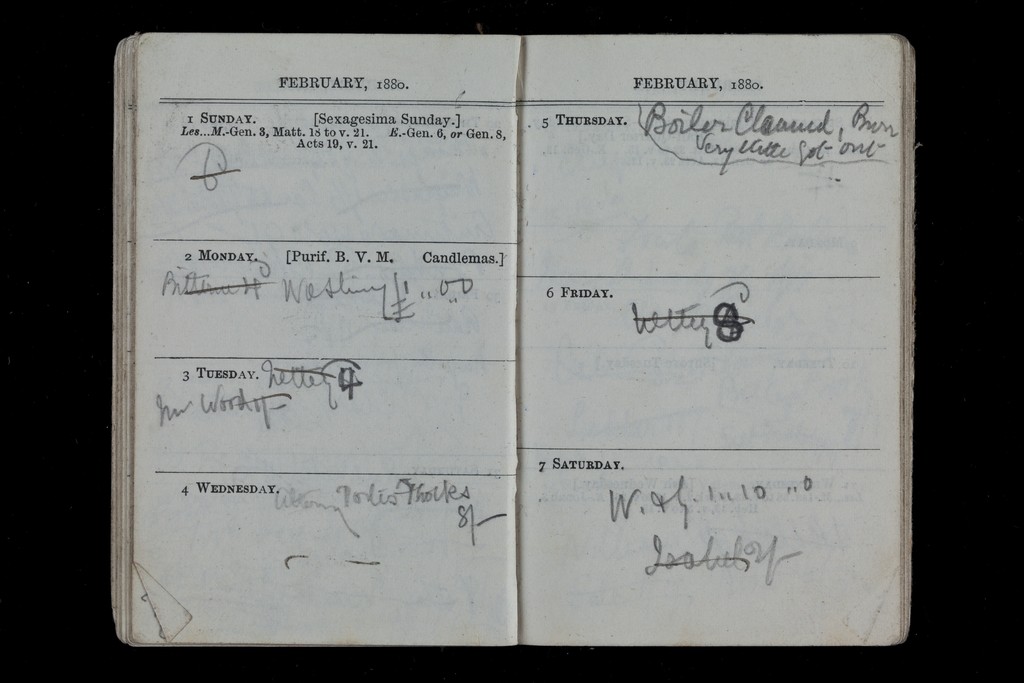 FEBRUARY, 1880.
1 SUNDAY. [Sexagesima Sunday.]
Les...M.-Gen. 3, Matt. 18 to v. 21. E.-Gen. 6, or Gen. 8,
Acts 19, v. 21.
6
2 MONDAY. [Purif. B. V. M. Candlemas.]
Washing £1 ,, 0,,0
3 TUESDAY. Letter 4
Mr Wood
4 WEDNESDAY.
8/-
FEBRUARY, 1880.
5 THURSDAY. Boiler Cleaned,
Very little got out
6 FRIDAY.
Letter 8
7 SATURDAY.
W. & G. 1 ,, 10 ,, 0
Isabel 2/-